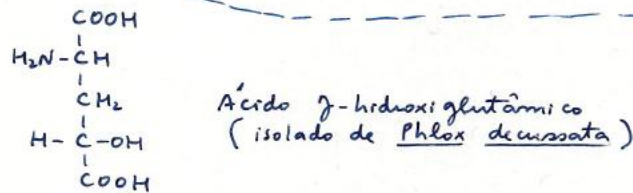 COOH
H₂N-CH
CH₂
H-C-OH
COOH
Ácido γ-hidroxiglutâmico
(isolado de Phlox decussata)